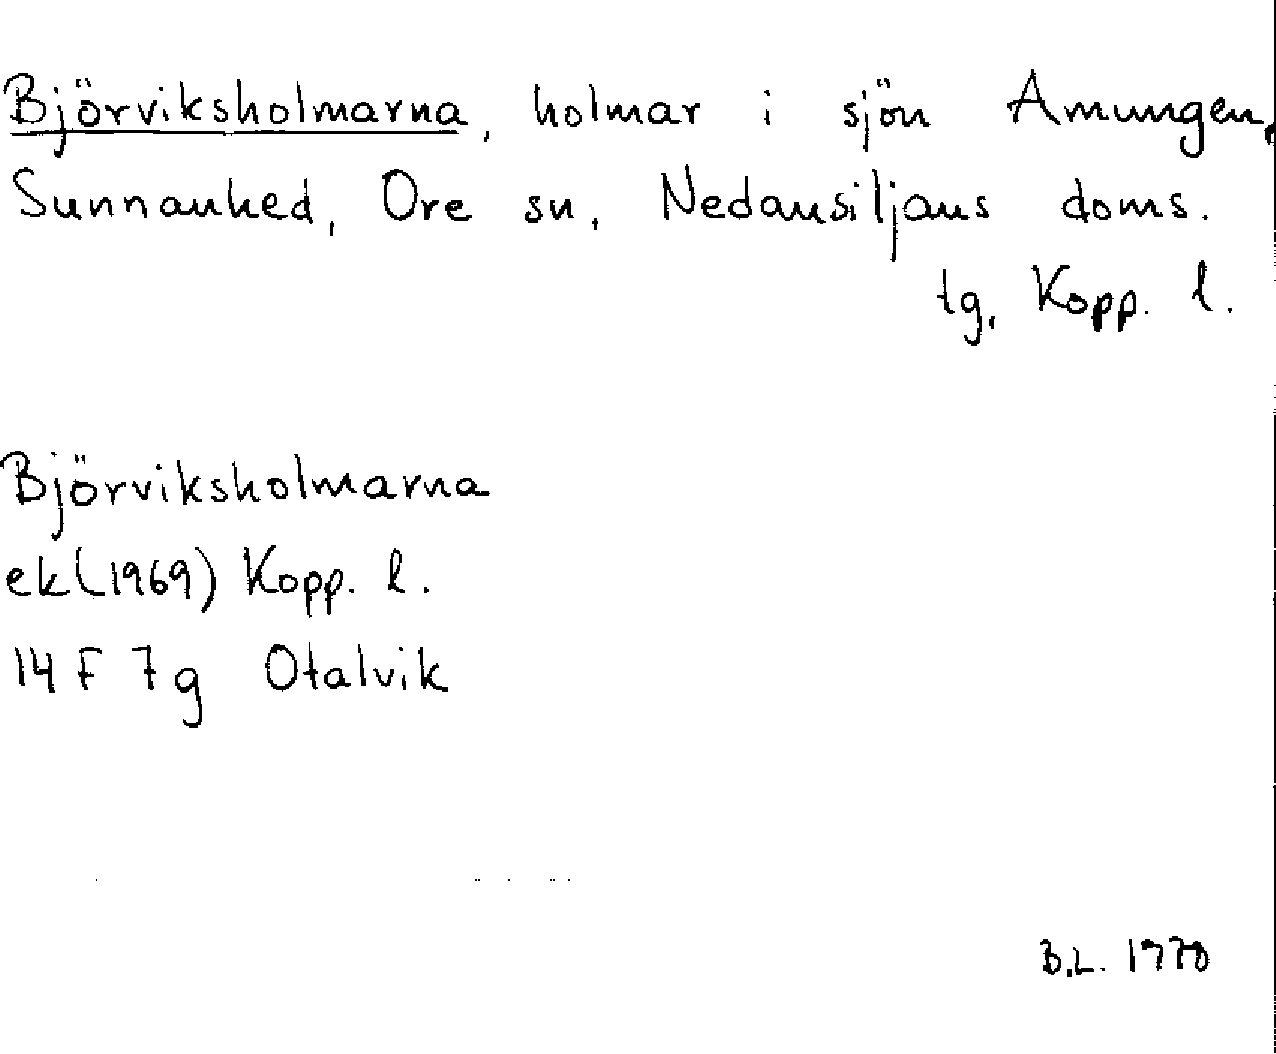 Björviksholmarna, holmar i sjön Amungen,
Sunnanhed, Ore sn, Nedansiljans doms.
tg, Kopp. l.
Björviksholmarna
ek(1969) Kopp. l.
14 F 7g Otalvik
B.L. 1970